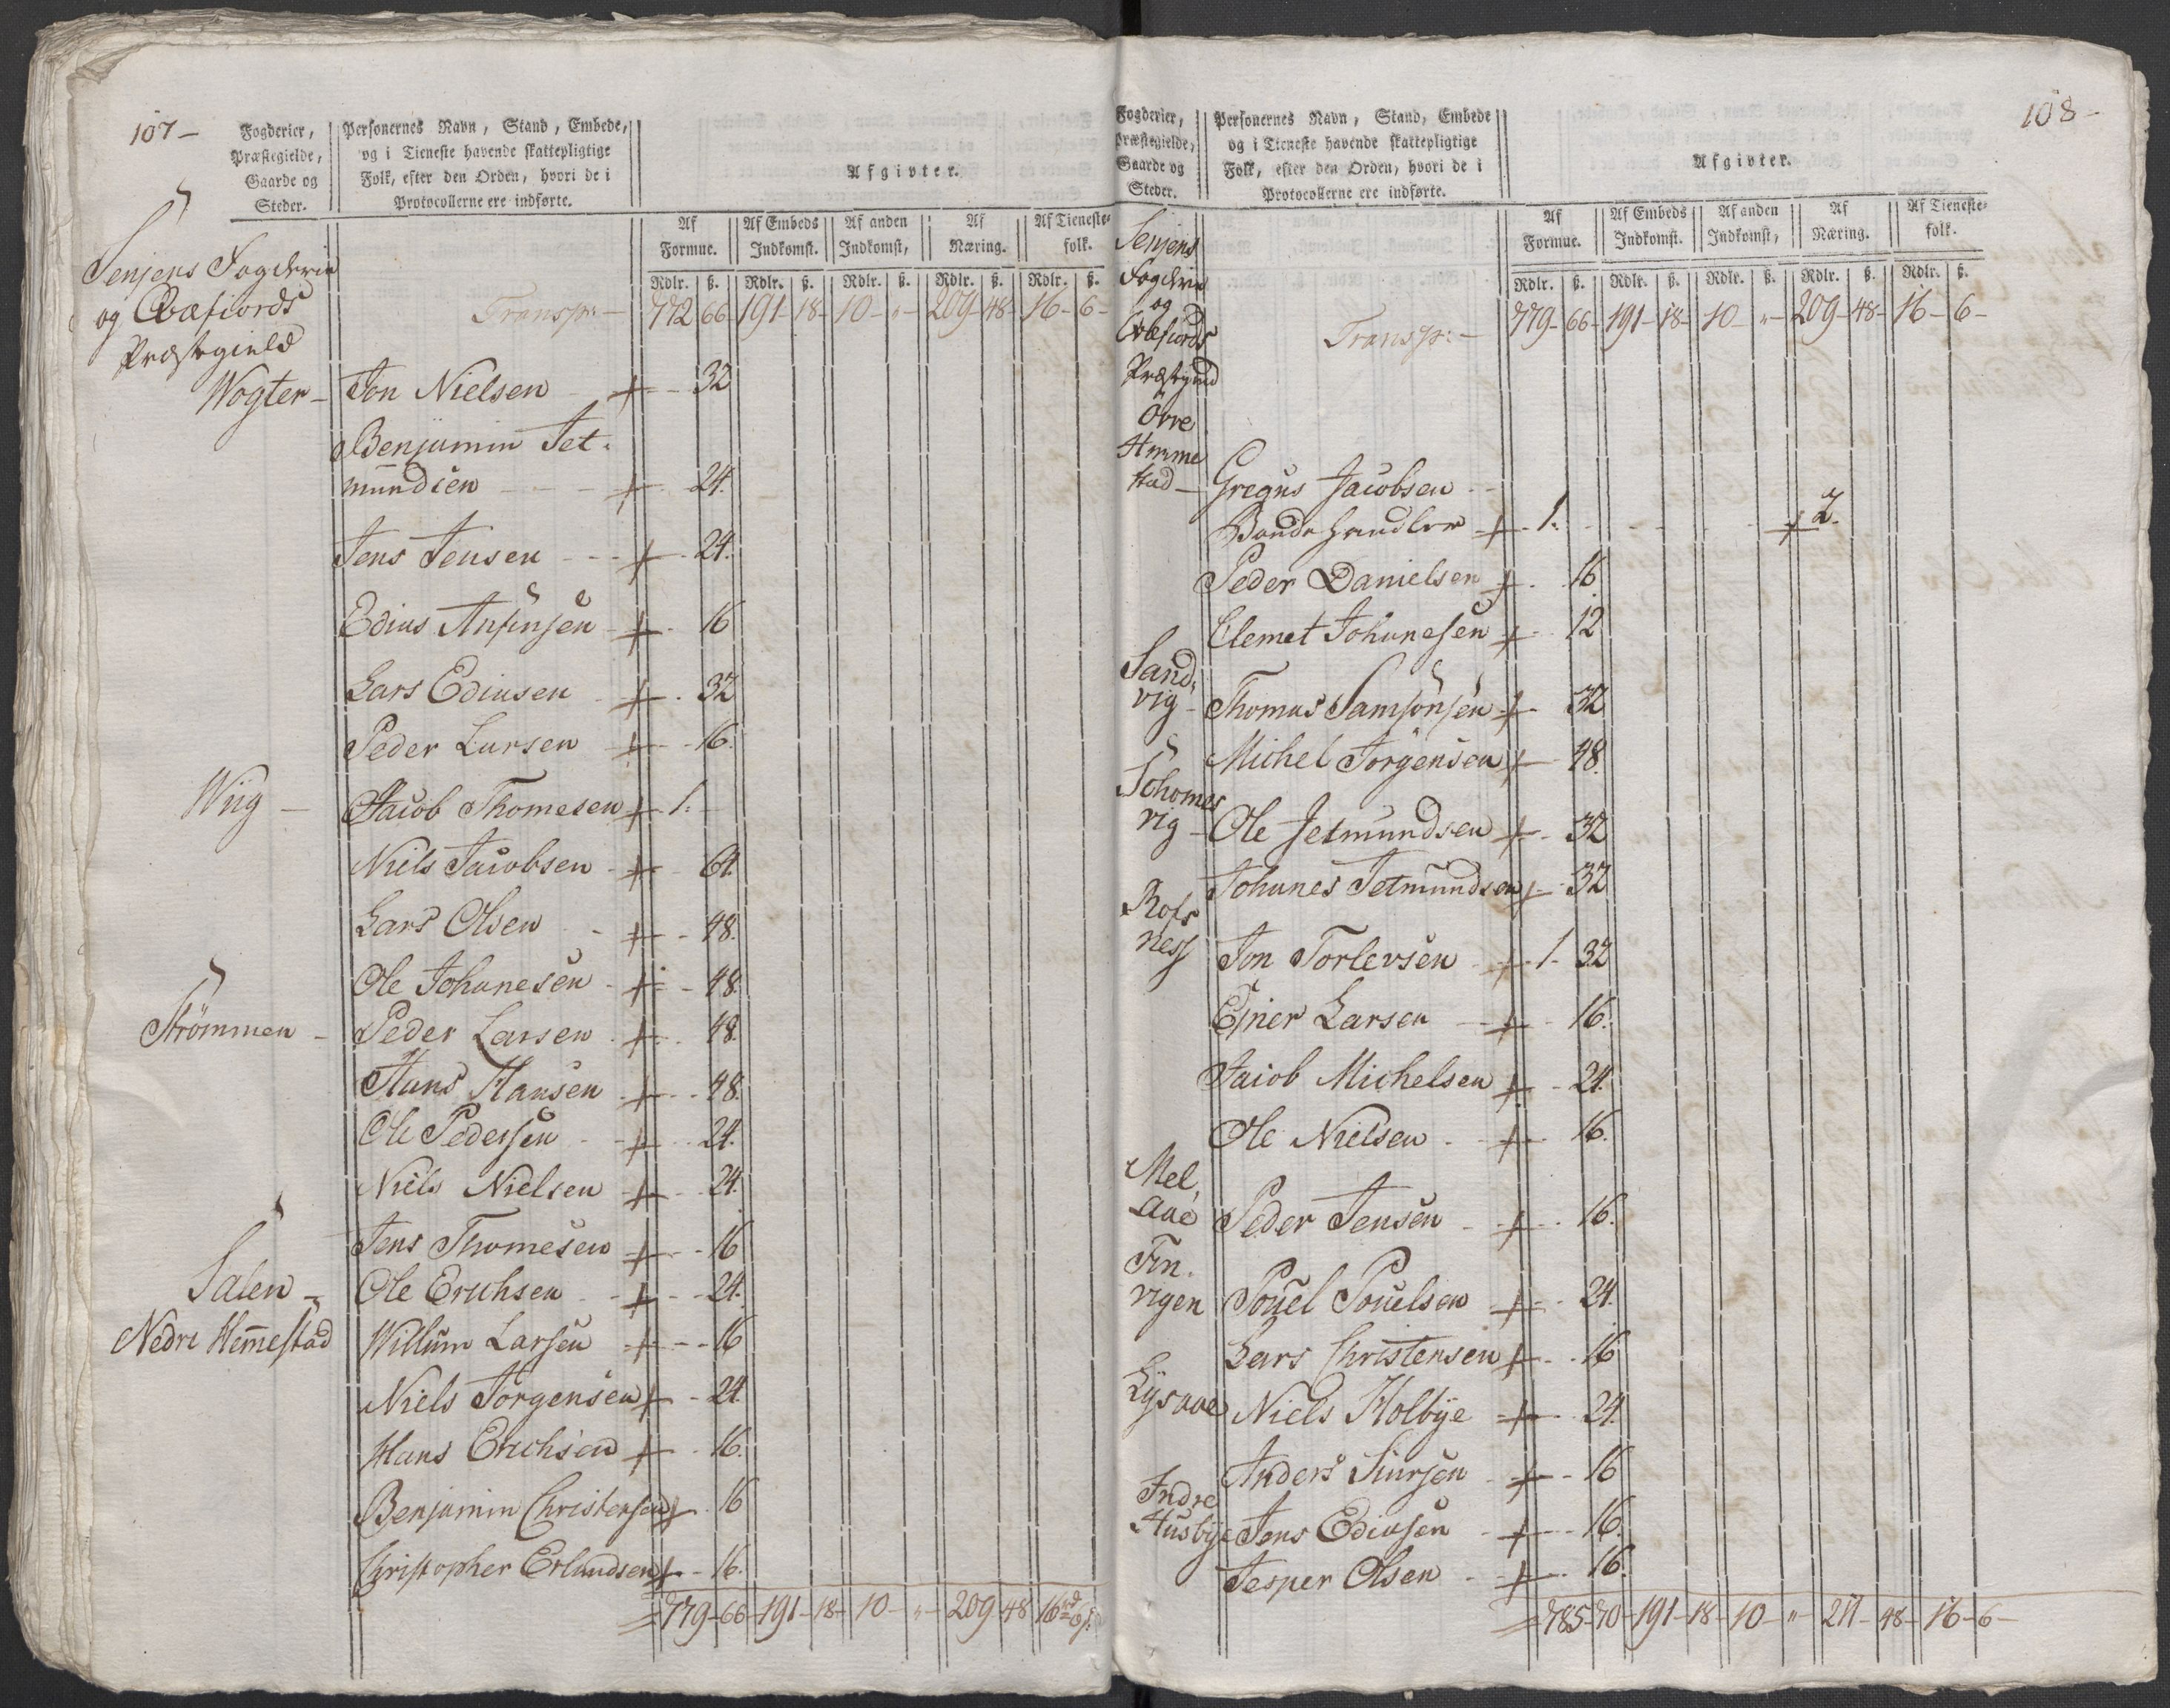 107 –
Fogderier,
Præstegielde,
Gaarde og
Steder.
Personernes Navn, Stand, Embede,
og i Tieneste havende skattepligtige
Folk, efter den Orden, hvori de i
Protocollerne ere indførte.
Afgivter.
Af Formue. Af Embeds Indkomst. Af anden Indkomst, Af Næring. Af Tieneste- folk.
Rdlr. ß. Rdlr. ß. Rdlr. ß. Rdlr. ß. Rdlr. ß.
Senjens Fogderie
og Qvæfiords
Præstegield
Transp: – 772 66 191 – 18 – 10 – „ – 209 – 48 – 16 – 6 –
Wogter – Jon Nielsen + – 32
Benjamin Jet-
mundsen – – – + 24.
Jens Jensen – – + 24.
Edius Anfinsen + 16
Lars Ediusen + 32
Peder Larsen + 16.
Wiig – Jacob Thomesen + 1. –
Niels Jacobsen + 64.
Lars Olsen – + 48.
Ole Johanesen + 48.
Strömmen – Peder Larsen + 48.
Hans Hansen + 48.
Ole Pedersen + 24.
Niels Nielsen + 24.
Jens Thomesen + 16
Salen – Ole Erichsen + 24.
Nedre Hem̄estad Willum Larsen + 16
Niels Jörgensen + 24.
Hans Erichsen + 16.
Benjamin Christensen + 16
Christopher Erlandsen + 16.
= 779 – 66 – 191 – 18 – 10 – „ – 209 48 16 rd 6 ß
108 –
Fogderier,
Præstegielde,
Gaarde og
Steder.
Personernes Navn, Stand, Embede
og i Tieneste havende skattepligtige
Folk, efter den Orden, hvori de i
Protocollerne ere indførte.
Afgivter.
Af Formue. Af Embeds Indkomst. Af anden Indkomst, Af Næring. Af Tieneste- folk.
Rdlr. ß. Rdlr. ß. Rdlr. ß. Rdlr. ß. Rdlr. ß.
Senjens
Fogderie
og
Qvæfiords
Præstegield
Transp: – 779 – 66 – 191 – 18 – 10 – „ – 209 – 48 – 16 – 6 –
Övre
Hemme
stad – Gregus Jacobsen
Bondehandler + 1. – – – + 2.
Peder Danielsen + 16.
Clemet Johanesen + 12
Sand-
vig – Thomas Samsönsen + 32
Michel Jörgensen + 48.
Johomes
vig – Ole Jetmundsen + 32
Johanes Jetmundsen + 32
Rols
ness Jon Torlevsen + 1. 32
Ejner Larsen + 16.
Jacob Michelsen + 24.
Ole Nielsen + 16.
Mel,
aae Peder Jensen + 16.
Fin-
vigen Pouel Pouelsen + 24.
Lars Christensen + 16
Lysaae Niels Holbye + 24.
Anders Siursen + 16
Indre
Husbye Jens Ediusen + 16.
Jesper Olsen + 16.
= 785 – 70 – 191 – 18 – 10 – „ – 211 – 48 – 16 – 6 –